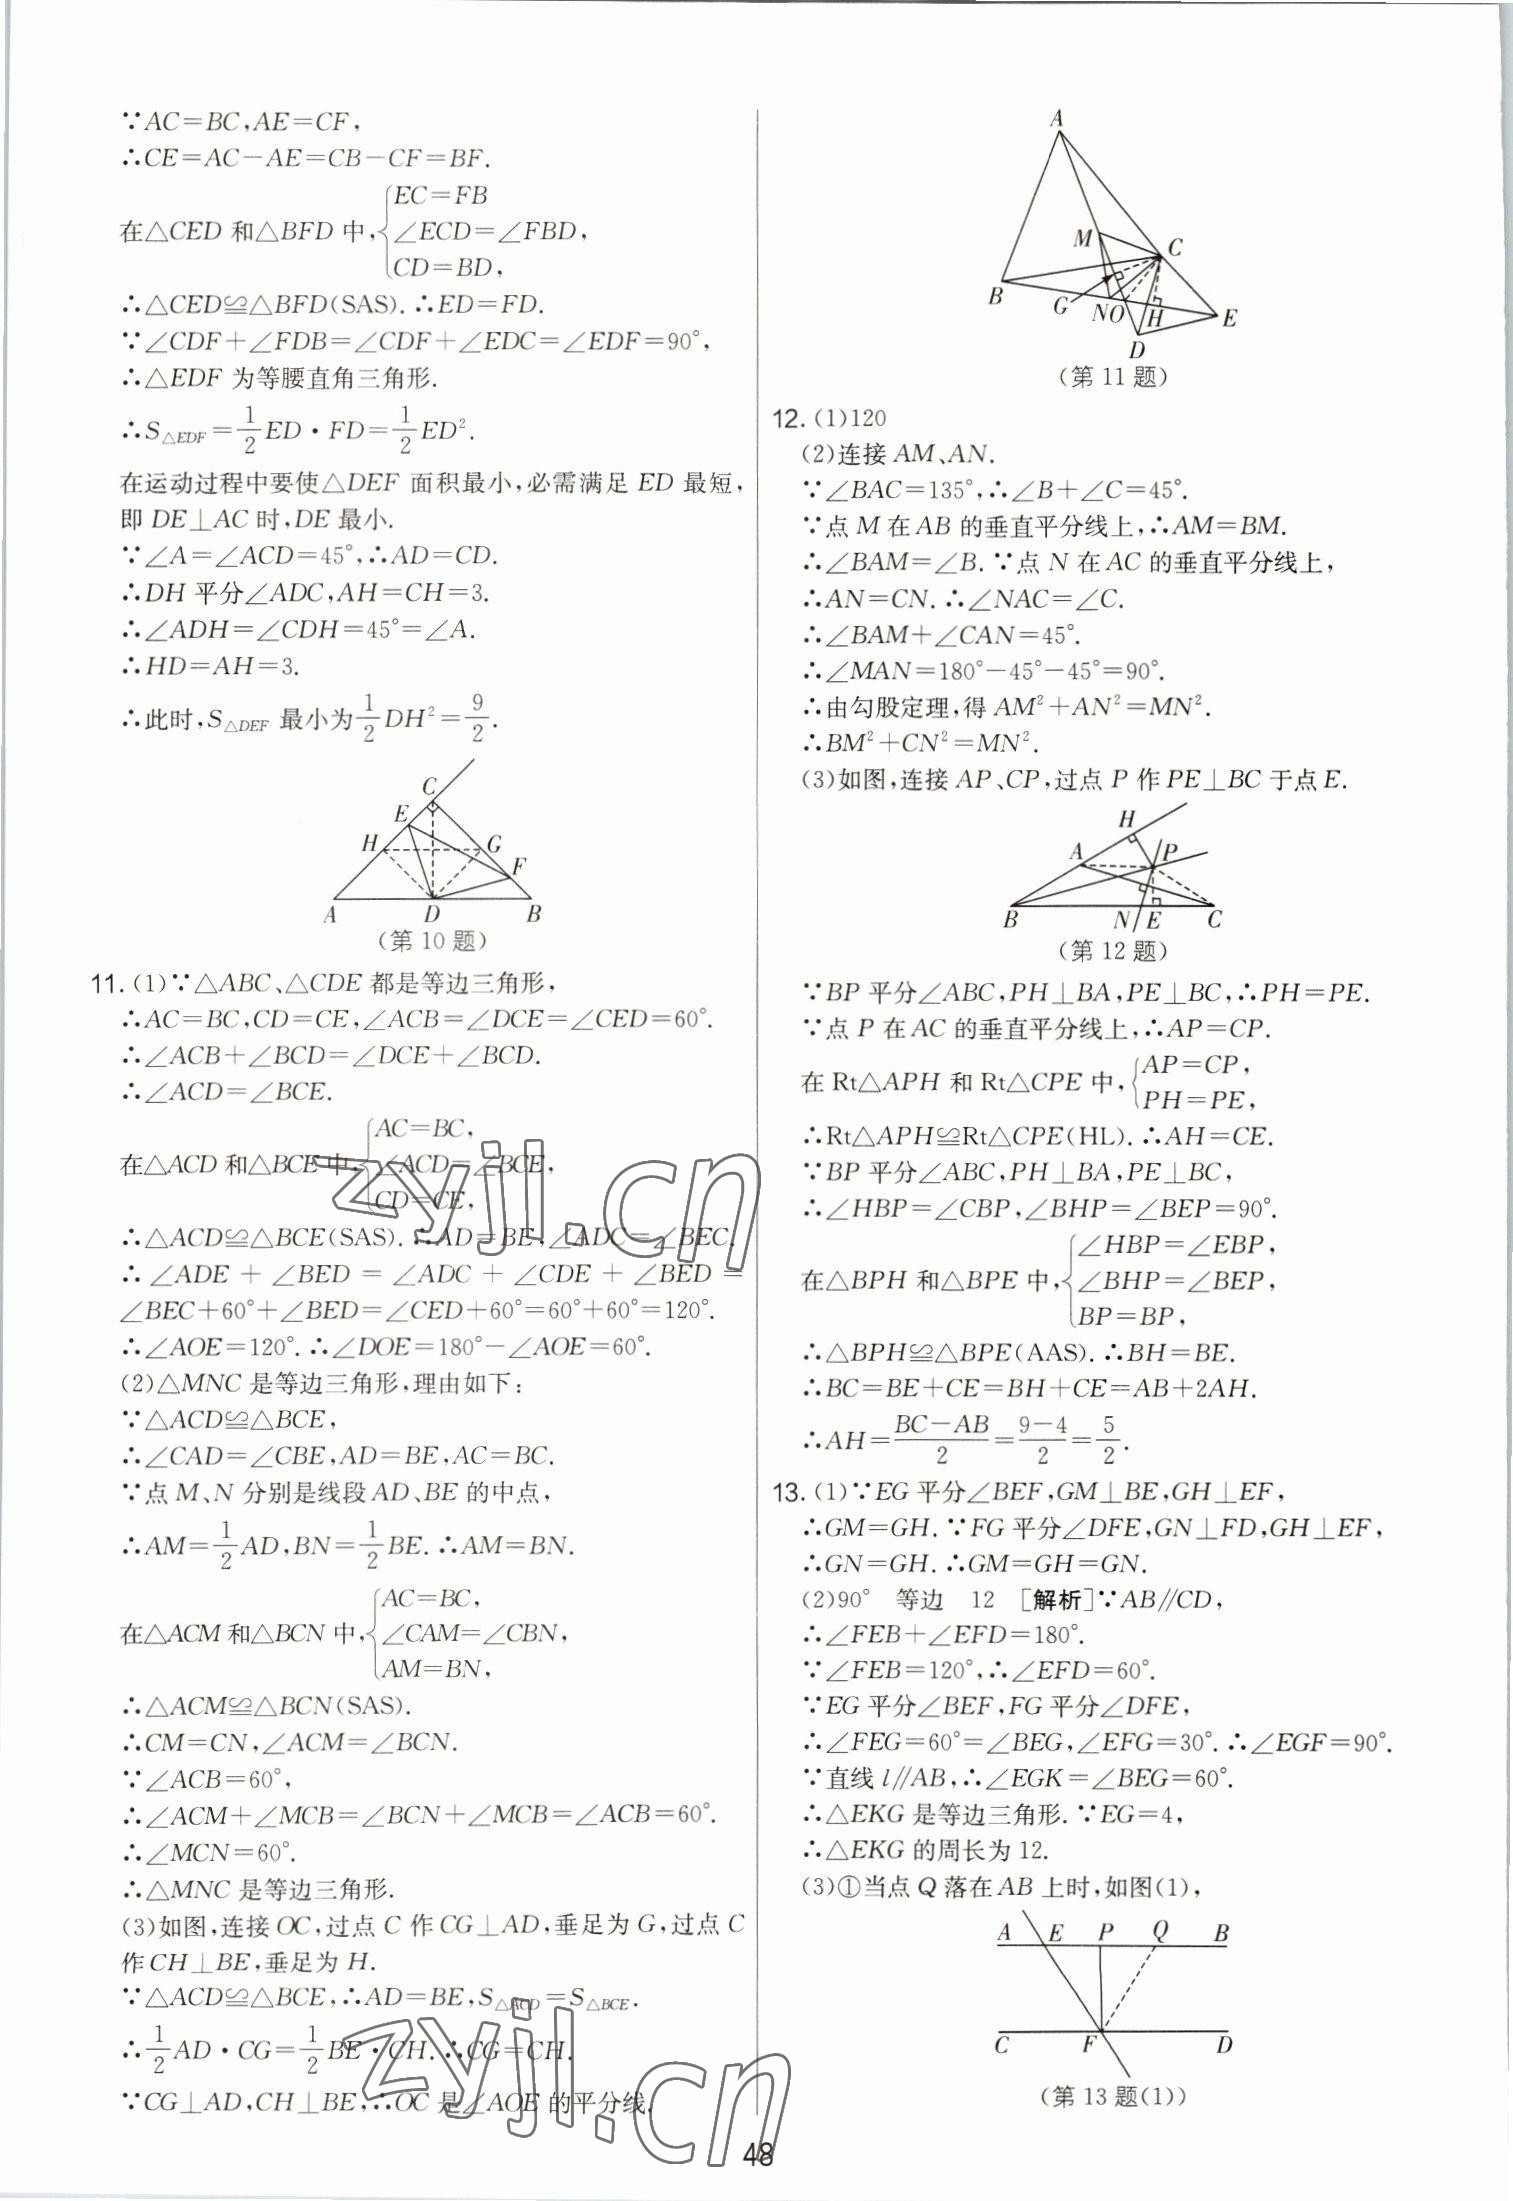 ∵AC=BC,AE=CF,
∴CE=AC-AE=CB-CF=BF.
在△CED 和△BFD 中,{EC=FB
∠ECD=∠FBD,
CD=BD,
∴△CED≌△BFD(SAS). ∴ED=FD.
∵∠CDF+∠FDB=∠CDF+∠EDC=∠EDF=90°,
∴△EDF 为等腰直角三角形.
∴S△EDF=1/2ED·FD=1/2ED².
在运动过程中要使△DEF 面积最小,必需满足 ED 最短,
即 DE⊥AC 时,DE 最小.
∵∠A=∠ACD=45°,∴AD=CD.
∴DH 平分∠ADC,AH=CH=3.
∴∠ADH=∠CDH=45°=∠A.
∴HD=AH=3.
∴此时,S△DEF 最小为1/2DH²=9/2.
C
E
H
G
F
A
D
B
(第 10 题)
11. (1)∵△ABC、△CDE 都是等边三角形,
∴AC=BC,CD=CE,∠ACB=∠DCE=∠CED=60°.
∴∠ACB+∠BCD=∠DCE+∠BCD.
∴∠ACD=∠BCE.
在△ACD 和△BCE 中,{AC=BC,
∠ACD=∠BCE,
CD=CE,
∴△ACD≌△BCE(SAS). ∴AD=BE,∠ADC=∠BEC.
∴∠ADE+∠BED=∠ADC+∠CDE+∠BED=
∠BEC+60°+∠BED=∠CED+60°=60°+60°=120°.
∴∠AOE=120°. ∴∠DOE=180°-∠AOE=60°.
(2)△MNC 是等边三角形,理由如下:
∵△ACD≌△BCE,
∴∠CAD=∠CBE,AD=BE,AC=BC.
∵点 M、N 分别是线段 AD、BE 的中点,
∴AM=1/2AD,BN=1/2BE. ∴AM=BN.
在△ACM 和△BCN 中,{AC=BC,
∠CAM=∠CBN,
AM=BN,
∴△ACM≌△BCN(SAS).
∴CM=CN,∠ACM=∠BCN.
∵∠ACB=60°,
∴∠ACM+∠MCB=∠BCN+∠MCB=∠ACB=60°.
∴∠MCN=60°.
∴△MNC 是等边三角形.
(3)如图,连接 OC,过点 C 作 CG⊥AD,垂足为 G,过点 C
作 CH⊥BE,垂足为 H.
∵△ACD≌△BCE,∴AD=BE,S△ACD=S△BCE.
∴1/2AD·CG=1/2BE·CH. ∴CG=CH.
∵CG⊥AD,CH⊥BE,∴OC 是∠AOE 的平分线.
A
M
C
B
G
N
O
H
E
D
(第 11 题)
12. (1)120
(2)连接 AM、AN.
∵∠BAC=135°,∴∠B+∠C=45°.
∵点 M 在 AB 的垂直平分线上,∴AM=BM.
∴∠BAM=∠B. ∵点 N 在 AC 的垂直平分线上,
∴AN=CN. ∴∠NAC=∠C.
∴∠BAM+∠CAN=45°.
∴∠MAN=180°-45°-45°=90°.
∴由勾股定理,得 AM²+AN²=MN².
∴BM²+CN²=MN².
(3)如图,连接 AP、CP,过点 P 作 PE⊥BC 于点 E.
H
A
P
B
N
E
C
(第 12 题)
∵BP 平分∠ABC,PH⊥BA,PE⊥BC,∴PH=PE.
∵点 P 在 AC 的垂直平分线上,∴AP=CP.
在 Rt△APH 和 Rt△CPE 中,{AP=CP,
PH=PE,
∴Rt△APH≌Rt△CPE(HL). ∴AH=CE.
∵BP 平分∠ABC,PH⊥BA,PE⊥BC,
∴∠HBP=∠CBP,∠BHP=∠BEP=90°.
在△BPH 和△BPE 中,{∠HBP=∠EBP,
∠BHP=∠BEP,
BP=BP,
∴△BPH≌△BPE(AAS). ∴BH=BE.
∴BC=BE+CE=BH+CE=AB+2AH.
∴AH=(BC-AB)/2=(9-4)/2=5/2.
13. (1)∵EG 平分∠BEF,GM⊥BE,GH⊥EF,
∴GM=GH. ∵FG 平分∠DFE,GN⊥FD,GH⊥EF,
∴GN=GH. ∴GM=GH=GN.
(2)90° 等边 12 [解析]∵AB∥CD,
∴∠FEB+∠EFD=180°.
∵∠FEB=120°,∴∠EFD=60°.
∵EG 平分∠BEF,FG 平分∠DFE,
∴∠FEG=60°=∠BEG,∠EFG=30°. ∴∠EGF=90°.
∵直线 l∥AB,∴∠EGK=∠BEG=60°.
∴△EKG 是等边三角形. ∵EG=4,
∴△EKG 的周长为 12.
(3)①当点 Q 落在 AB 上时,如图(1),
A
E
P
Q
B
C
F
D
(第 13 题(1))
48
zyjl.cn
zyjl.cn